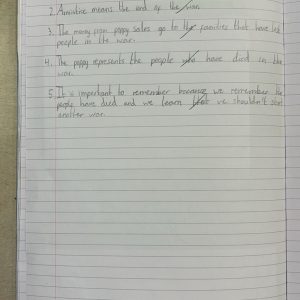 2. Armistic means the end of the war.
3. The money from poppy sales go to the families that have lost
people in the war.
4. The poppy represents the people who have died in the
war.
5. It is important to remember because we remember the
people have died and we learn that we shouldn't start
another war.